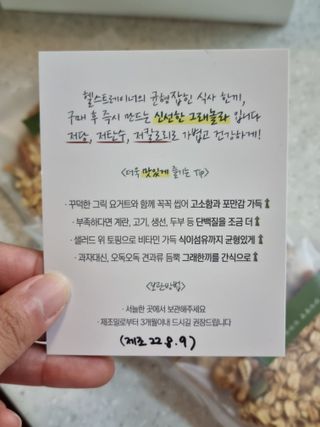 헬스트레이너의 균형잡힌 식사 한끼,
구매 후 즉시 만드는 신선한 그래놀라 입니다
저당, 저탄수, 저칼로리로 가볍고 건강하게!
<더욱 맛있게 즐기는 Tip>
· 꾸덕한 그릭 요거트와 함께 꼭꼭 씹어 고소함과 포만감 가득
· 부족하다면 계란, 고기, 생선, 두부 등 단백질을 조금 더
· 샐러드 위 토핑으로 비타민 가득 식이섬유까지 균형있게
· 과자대신, 오독오독 견과류 듬뿍 그래한끼를 간식으로
<보관방법>
· 서늘한 곳에서 보관해주세요
· 제조일로부터 3개월이내 드시길 권장드립니다
(제조 22.8.9)